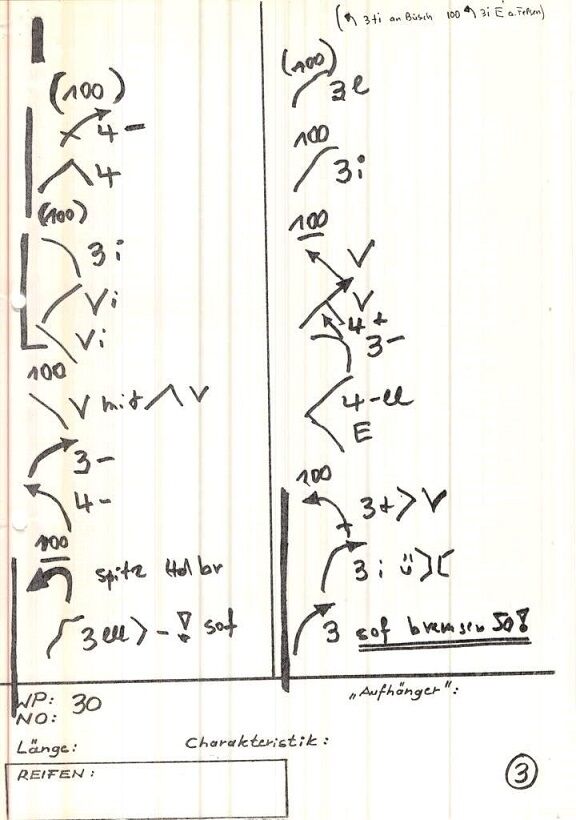 (3+i an Büsch 100 3i E a. Felsen)
(100)
4-
4
(100)
3i
Vi
Vi
100
V mit V
3-
4-
100
spitz Holbr
3ell > - ! sof
(100)
3e
100
3i
100
V
V
4+
3-
4-ell
E
100
3+ > V
3i
3 sof bremsen 50!
WP: 30
NO:
Länge:
Charakteristik:
REIFEN:
"Aufhänger":
3